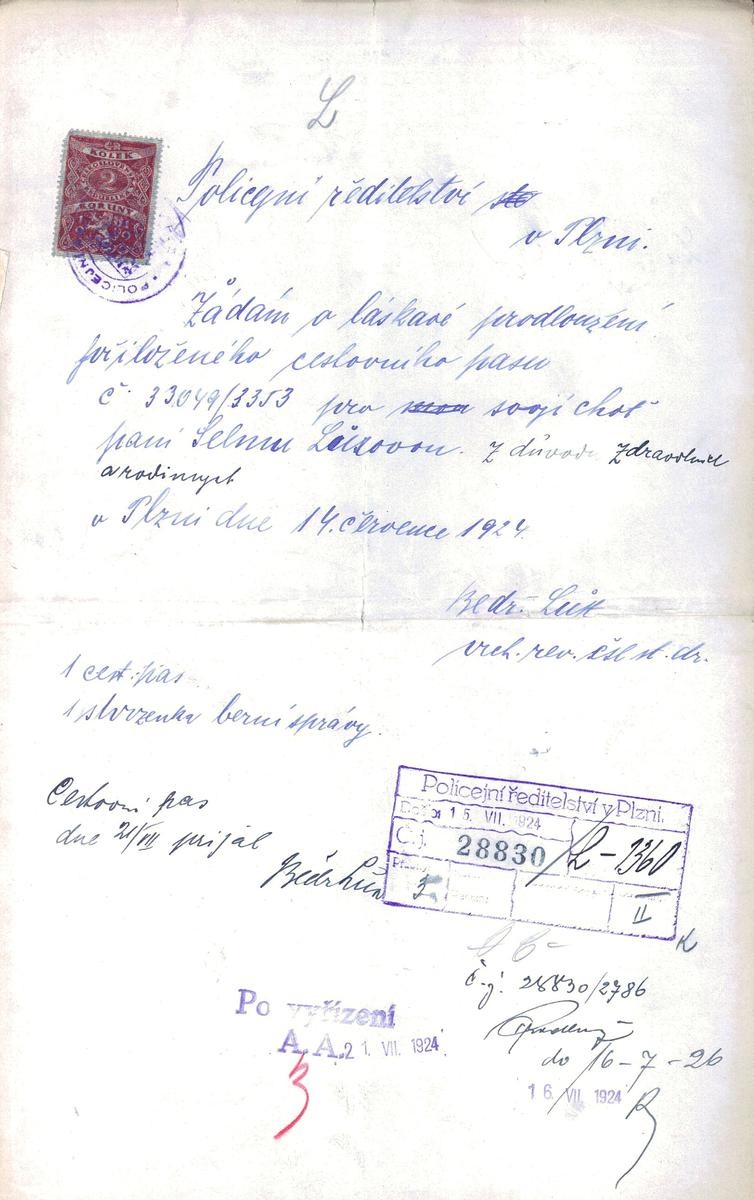 L
KOLEK
2
KORUNY
POLICEJNÍ
Policejní ředitelství
v Plzni.
Žádám o láskavé prodloužení
přiloženého cestovního pasu
č. 33049/3353 pro svoji choť
paní Selmu Lüxovou. Z důvodu zdravotních
a rodinných
v Plzni dne 14. července 1924.
Bedř. Lüx
vrch. rev. čsl. st. dr.
1 cest. pas
1 stvrzenka berní správy.
Cestovní pas
dne 21/VII přijal
Bedř Lüx
Policejní ředitelství v Plzni.
Došlo 15. VII. 1924
Č.j. 28830/L-1360
Přílohy
3.
II
K
č.j. 28830/2786
do 16-7-26
16. VII. 1924
Po vyřízení
A. A. 21. VII. 1924
3